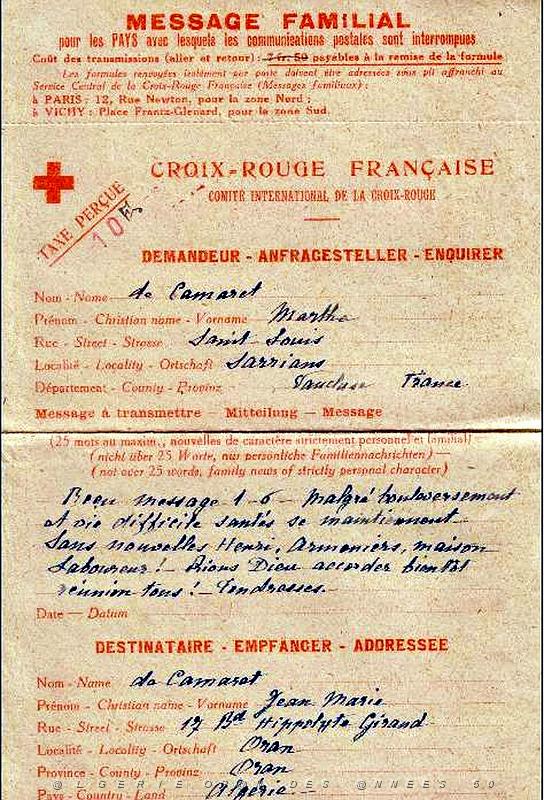 MESSAGE FAMILIAL
pour les PAYS avec lesquels les communications postales sont interrompues
Coût des transmissions (aller et retour) : 7 fr. 50 payables à la remise de la formule
Les formules renvoyées isolément par poste doivent être adressées sous pli affranchi au
Service Central de la Croix-Rouge Française (Messages familiaux) :
à PARIS : 12, Rue Newton, pour la zone Nord ;
à VICHY : Place Frantz-Glénard, pour la zone Sud.
CROIX-ROUGE FRANÇAISE
COMITÉ INTERNATIONAL DE LA CROIX-ROUGE
TAXE PERÇUE
10 F
DEMANDEUR - ANFRAGESTELLER - ENQUIRER
Nom - Name de Camaret
Prénom - Christian name - Vorname Marthe
Rue - Street - Strasse Saint Louis
Localité - Locality - Ortschaft Sarrians
Département - County - Provinz Vaucluse France
Message à transmettre — Mitteilung — Message
(25 mots au maxim., nouvelles de caractère strictement personnel et familial)
(nicht über 25 Worte, nur persönliche Familiennachrichten) —
(not over 25 words, family news of strictly personal character)
Reçu message 1-6 - Malgré bouleversement
et vie difficile santés se maintiennent
Sans nouvelles Henri, Armeniers, maison
Laboureur ! - Prions Dieu accorder bientôt
réunion tous ! - Tendresses.
Date — Datum
DESTINATAIRE - EMPFÄNGER - ADDRESSEE
Nom - Name de Camaret
Prénom - Christian name - Vorname Jean Marie
Rue - Street - Strasse 17 Bd Hippolyte Giraud
Localité - Locality - Ortschaft Oran
Province - County - Provinz Oran
Pays - Country - Land Algérie